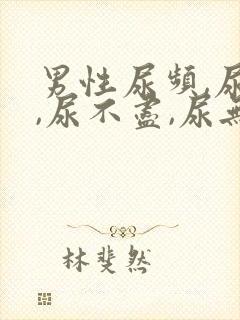 男性尿頻,尿
,尿不盡,尿無
林斐然